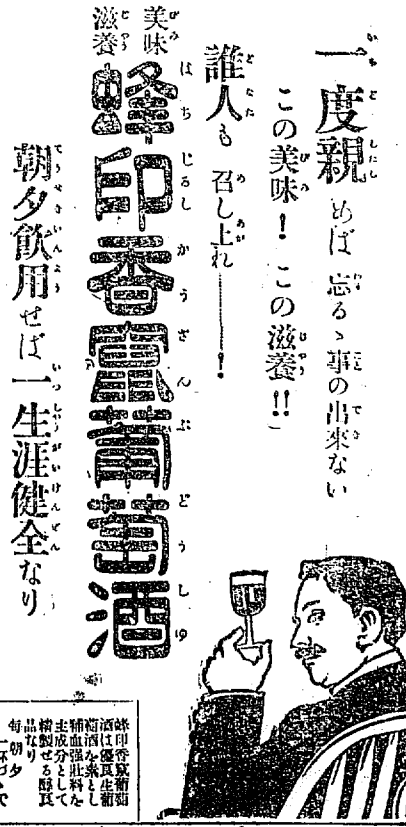 一度親めば忘るゝ事の出來ない
この美味！この滋養!!
誰人も召し上れ――！
美味
滋養
蜂印香竄葡萄酒
朝夕飲用せば一生涯健全なり
蜂印香竄葡萄
酒は優良生葡
萄酒を素とし
補血強壯料を
主成分として
精製せる醇良
品なり
毎朝夕
一杯づゝで